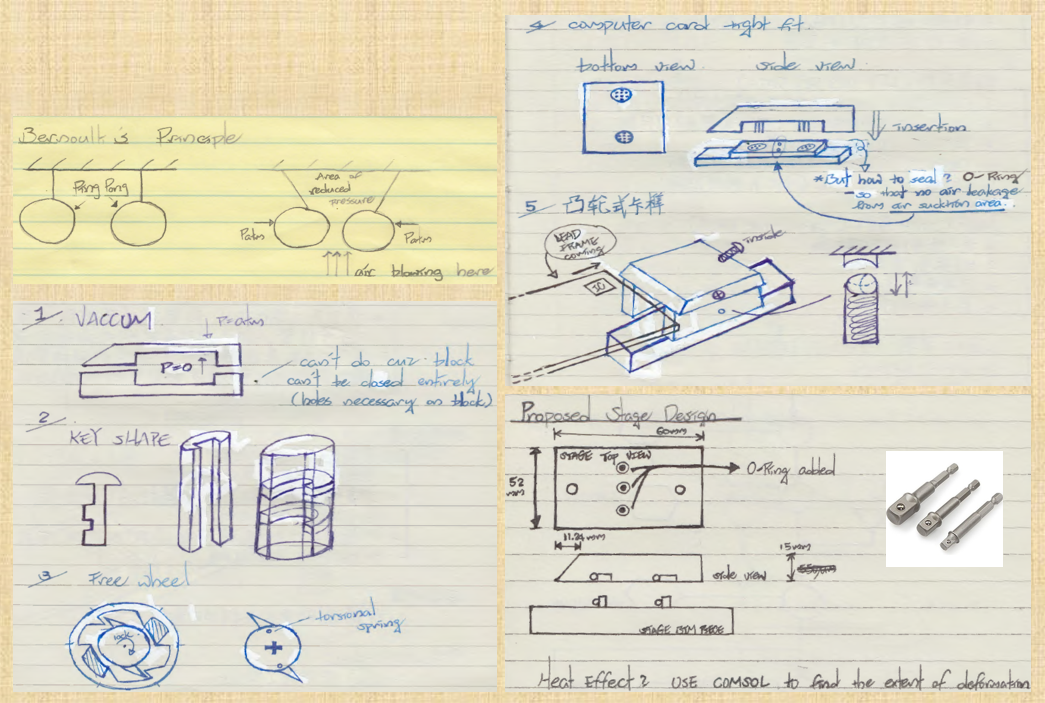 Bernoulli's Principle
Ping Pong
Area of
reduced
pressure
Patm
Patm
air blowing here
1 VACCUM
P=atm
P=0
can't do cuz block
can't be closed entirely
(holes necessary on block)
2
KEY SHAPE
3 Free wheel
lock
torsional
spring
4 computer card tight fit.
bottom view
side view
insertion
*But how to seal? O-Ring
- so that no air leakage
from air suction area.
5 凸轮式卡榫
LEAD
FRAME
coming
inside
IC
Proposed Stage Design
60mm
STAGE TOP VIEW
O-Ring added
52
mm
11.24mm
15mm
side view
STAGE BTM PIECE
Heat Effect? USE COMSOL to find the extent of deformation